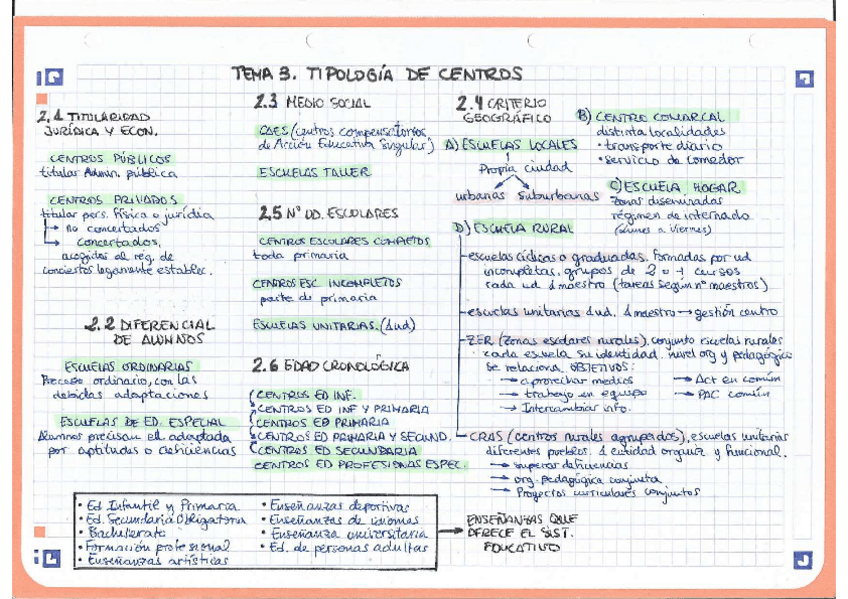 TEMA 3. TIPOLOGÍA DE CENTROS
2.1 TITULARIDAD
JURÍDICA Y ECON.
CENTROS PÚBLICOS
titular Admin. pública
CENTROS PRIVADOS
titular pers. física o jurídia
→ no concertados
→ concertados,
acogidos al rég. de
conciertos legamente establec.
2.2 DIFERENCIAL
DE ALUMNOS
ESCUELAS ORDINARIAS
Proceso ordinario, con las
debidas adaptaciones
ESCUELAS DE ED. ESPECIAL
Alumnos precisan ed. adaptada
por aptitudes o deficiencias
2.3 MEDIO SOCIAL
CAES (centros compensatorios
de Acción Educativa Singular)
ESCUELAS TALLER
2.5 Nº UD. ESCOLARES
CENTROS ESCOLARES COMPLETOS
toda primaria
CENTROS ESC. INCOMPLETOS
parte de primaria
ESCUELAS UNITARIAS. (1ud)
2.6 EDAD CRONOLÓGICA
CENTROS ED INF.
CENTROS ED INF Y PRIMARIA
CENTROS ED PRIMARIA
CENTROS ED PRIMARIA Y SECUND.
CENTROS ED SECUNDARIA
CENTROS ED PROFESIONAS ESPEC.
2.4 CRITERIO
GEOGRÁFICO
A) ESCUELAS LOCALES
Propia ciudad
urbanas suburbanas
B) CENTRO COMARCAL
distinta localidades
• transporte diario
• servicio de comedor
C) ESCUELA HOGAR
Zonas diseminadas
régimen de internado
(Lunes a Viernes)
D) ESCUELA RURAL
- escuelas cíclicas o graduadas. formadas por ud
incompletas, grupos de 2 o + cursos
cada ud 1 maestro (tareas según nº maestros)
- escuelas unitarias 1ud. 1 maestro → gestión centro
- ZER (Zonas escolares rurales). conjunto escuelas rurales
cada escuela su identidad. nivel org y pedagógico
se relaciona. OBJETIVOS:
→ aprovechar medios → Act en común
→ trabajo en equipo → PAC común
→ Intercambiar info.
- CRAS (centros rurales agrupados), escuelas unitarias
diferentes pueblos. 1 entidad organiz y funcional.
→ superar deficiencias
→ org. pedagógica conjunta
→ Proyectos curriculares conjuntos
• Ed Infantil y Primaria
• Ed. Secundaria Obligatoria
• Bachillerato
• Formación profesional
• Enseñanzas artísticas
• Enseñanzas deportivas
• Enseñanzas de idiomas
• Enseñanza universitaria
• Ed. de personas adultas
→ ENSEÑANZAS QUE
OFRECE EL SIST.
EDUCATIVO